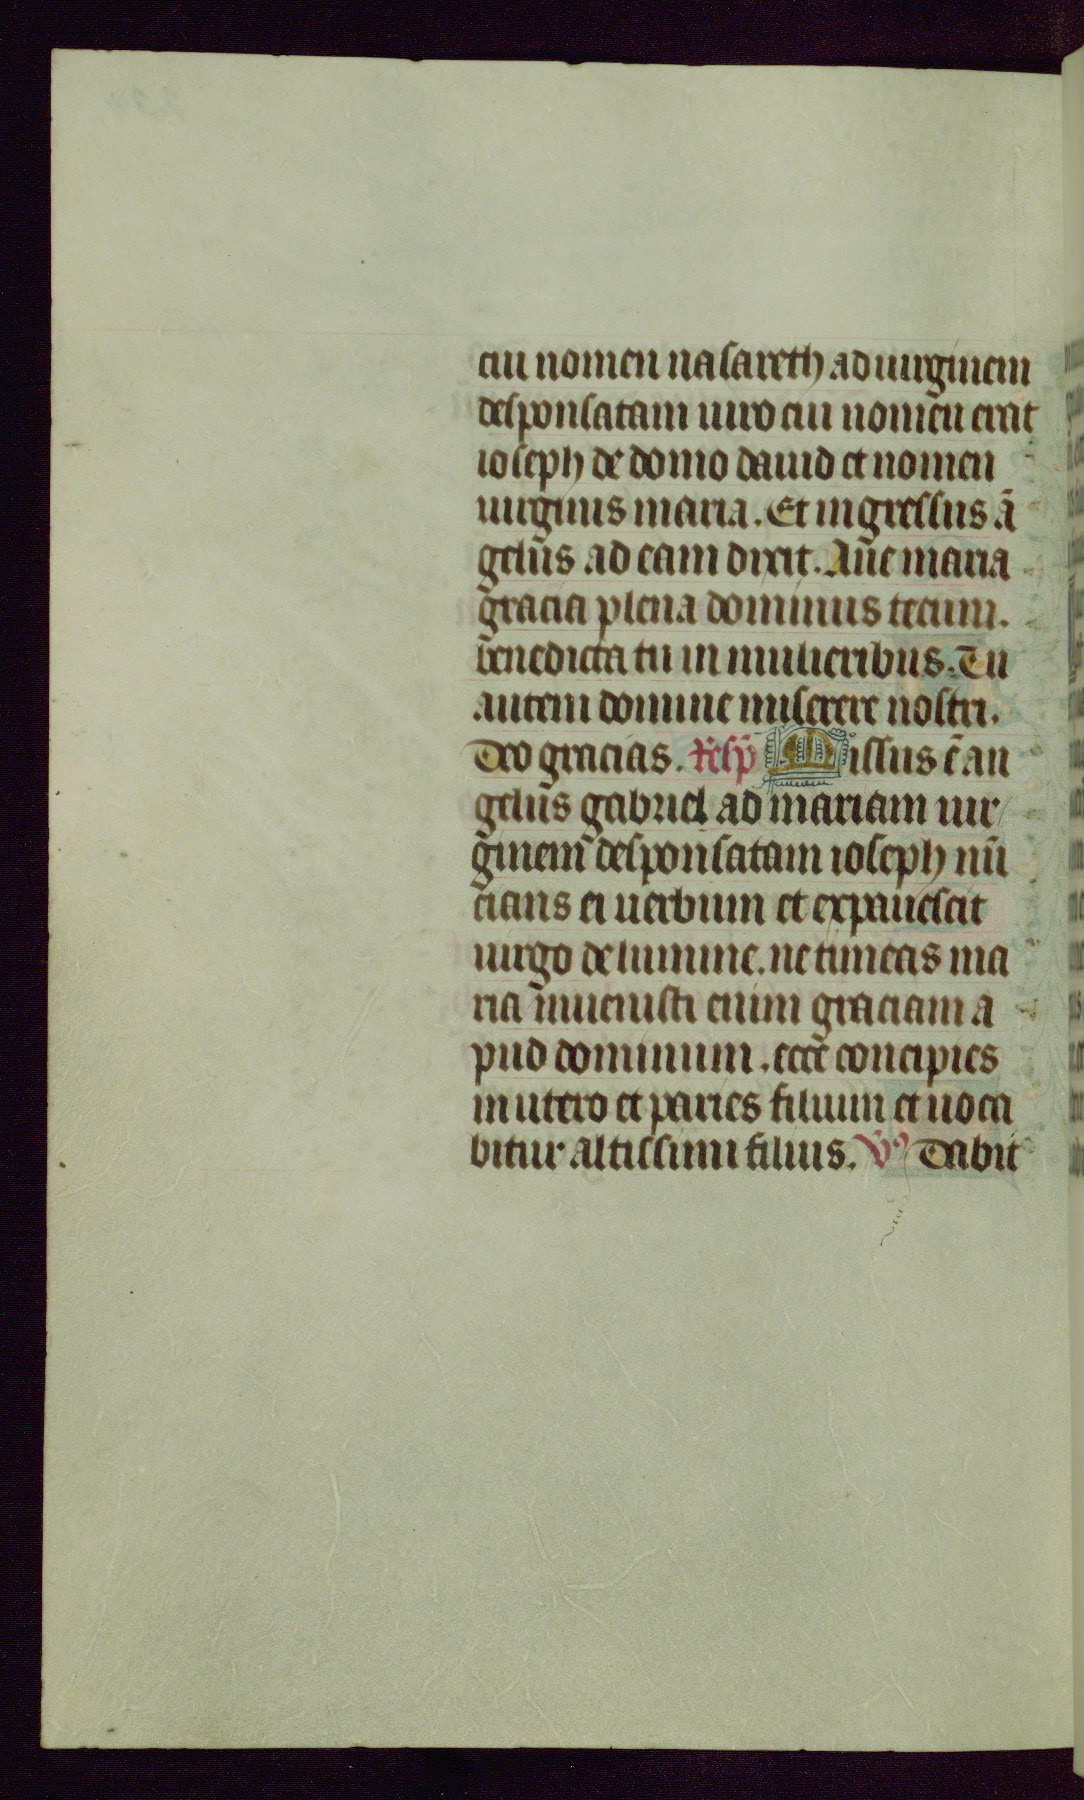 cui nomen nasareth ad uirginem
desponsatam uiro cui nomen erat
ioseph de domo dauid et nomen
uirginis maria. Et ingressus ā
gelus ad eam dixit. Aue maria
gracia plena dominus tecum.
benedicta tu in mulieribus. Tu
autem domine miserere nostri.
Deo gracias. Resp̄ Missus ē an
gelus gabriel ad mariam uir
ginem desponsatam ioseph nū
cians ei uerbum et expauescit
uirgo de lumine. ne timeas ma
ria inuenisti enim graciam a
pud dominum. ecce concipies
in utero et paries filium et uoca
bitur altissimi filius. V̄ Dabit